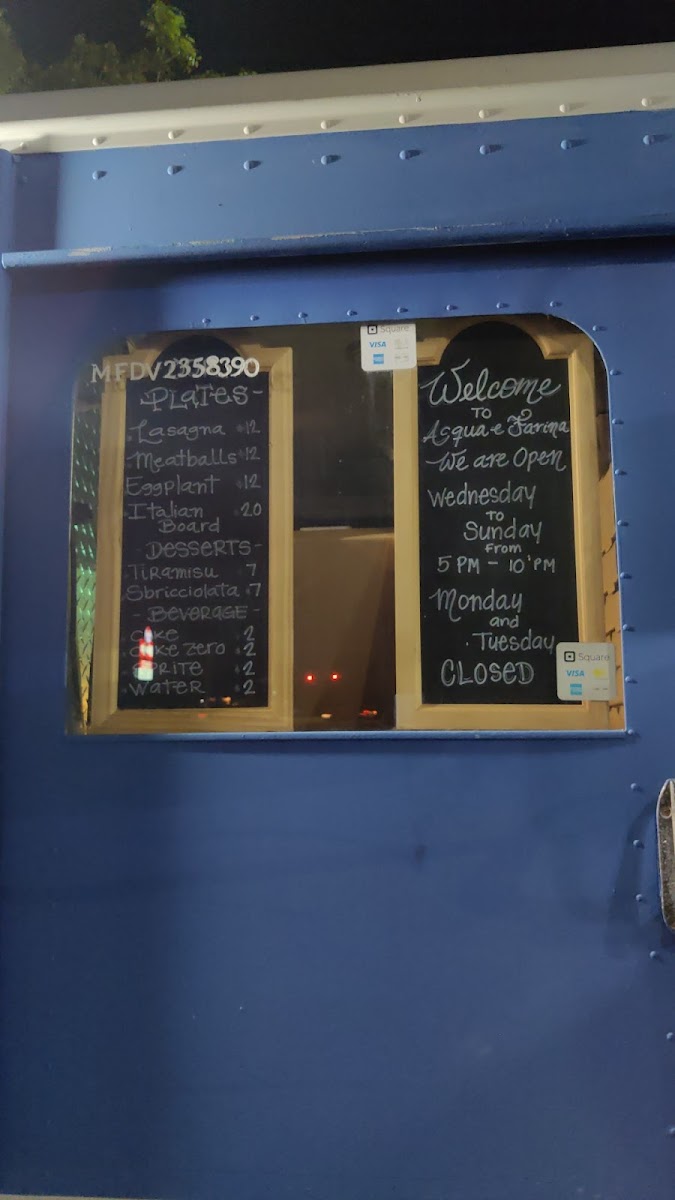 MFDV2358390
PLATES-
Lasagna $12
Meatballs $12
Eggplant $12
Italian 20
Board
- DESSERTS-
Tiramisu 7
Sbricciolata 7
- BEVERAGE -
Coke 2
Coke Zero 2
Sprite 2
Water 2
Square
VISA
Welcome
TO
Acqua e Farina
We are Open
Wednesday
TO
Sunday
From
5 PM - 10 PM
Monday
and
Tuesday
CLOSED
Square
VISA